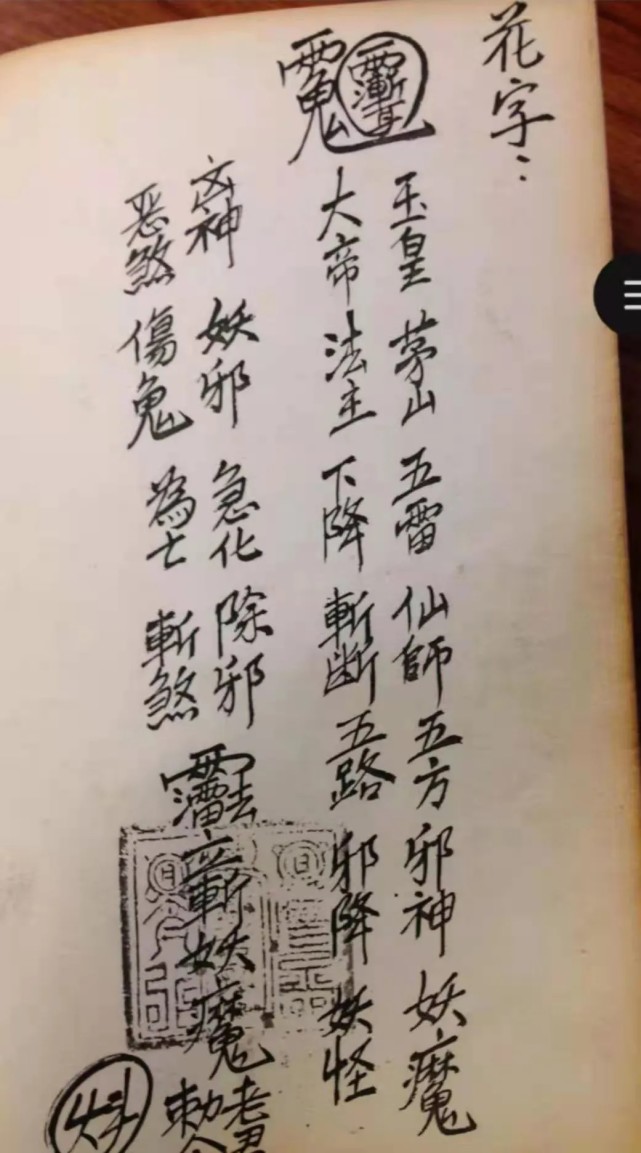 花字：
玉皇 茅山 五雷 仙師 五方 邪神 妖魔
大帝 法主 下降 斬断 五路 邪降 妖怪
凶神 妖邪 急化 除邪
惡煞 傷鬼 為 斬煞
斬妖魔
老君
勅令